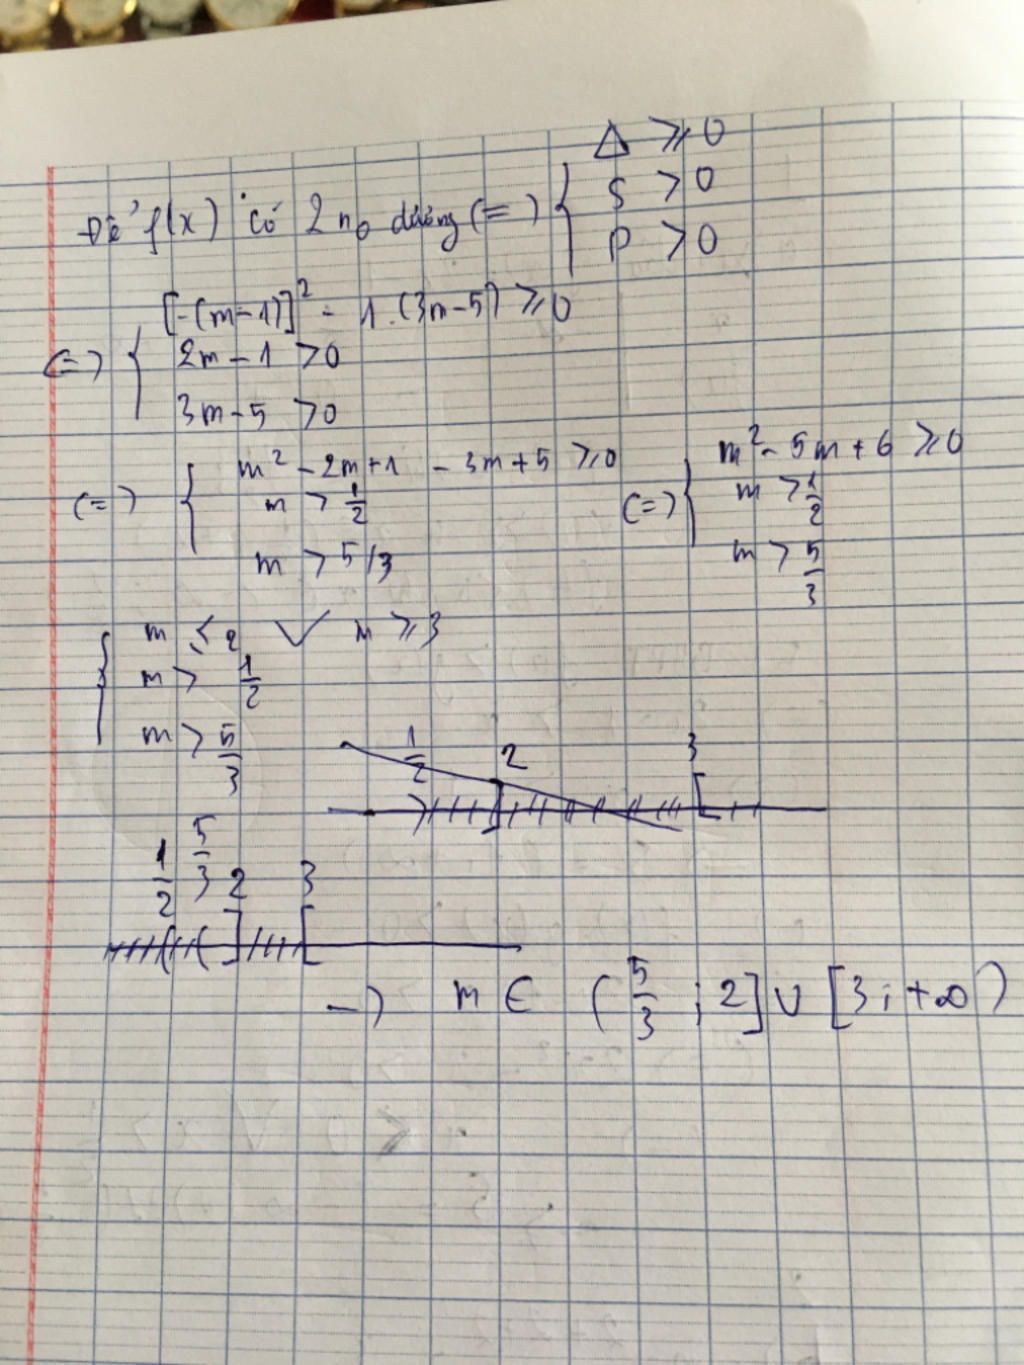 Để f(x) có 2 n₀ dương (=) { Δ ⩾ 0
S > 0
P > 0
(=) { [-(m-1)]² - 1.(3m-5) ⩾ 0
2m - 1 > 0
3m - 5 > 0
(=) { m² - 2m+1 - 3m+5 ⩾ 0
m > 1/2
m > 5/3
(=) { m² - 5m + 6 ⩾ 0
m > 1/2
m > 5/3
{ m ⩽ 2 ∨ m ⩾ 3
m > 1/2
m > 5/3
1/2 2 3
) ] [
1/2 5/3 2 3
( ( ] [
-) m ∈ (5/3 ; 2] ∪ [3 ; +∞)